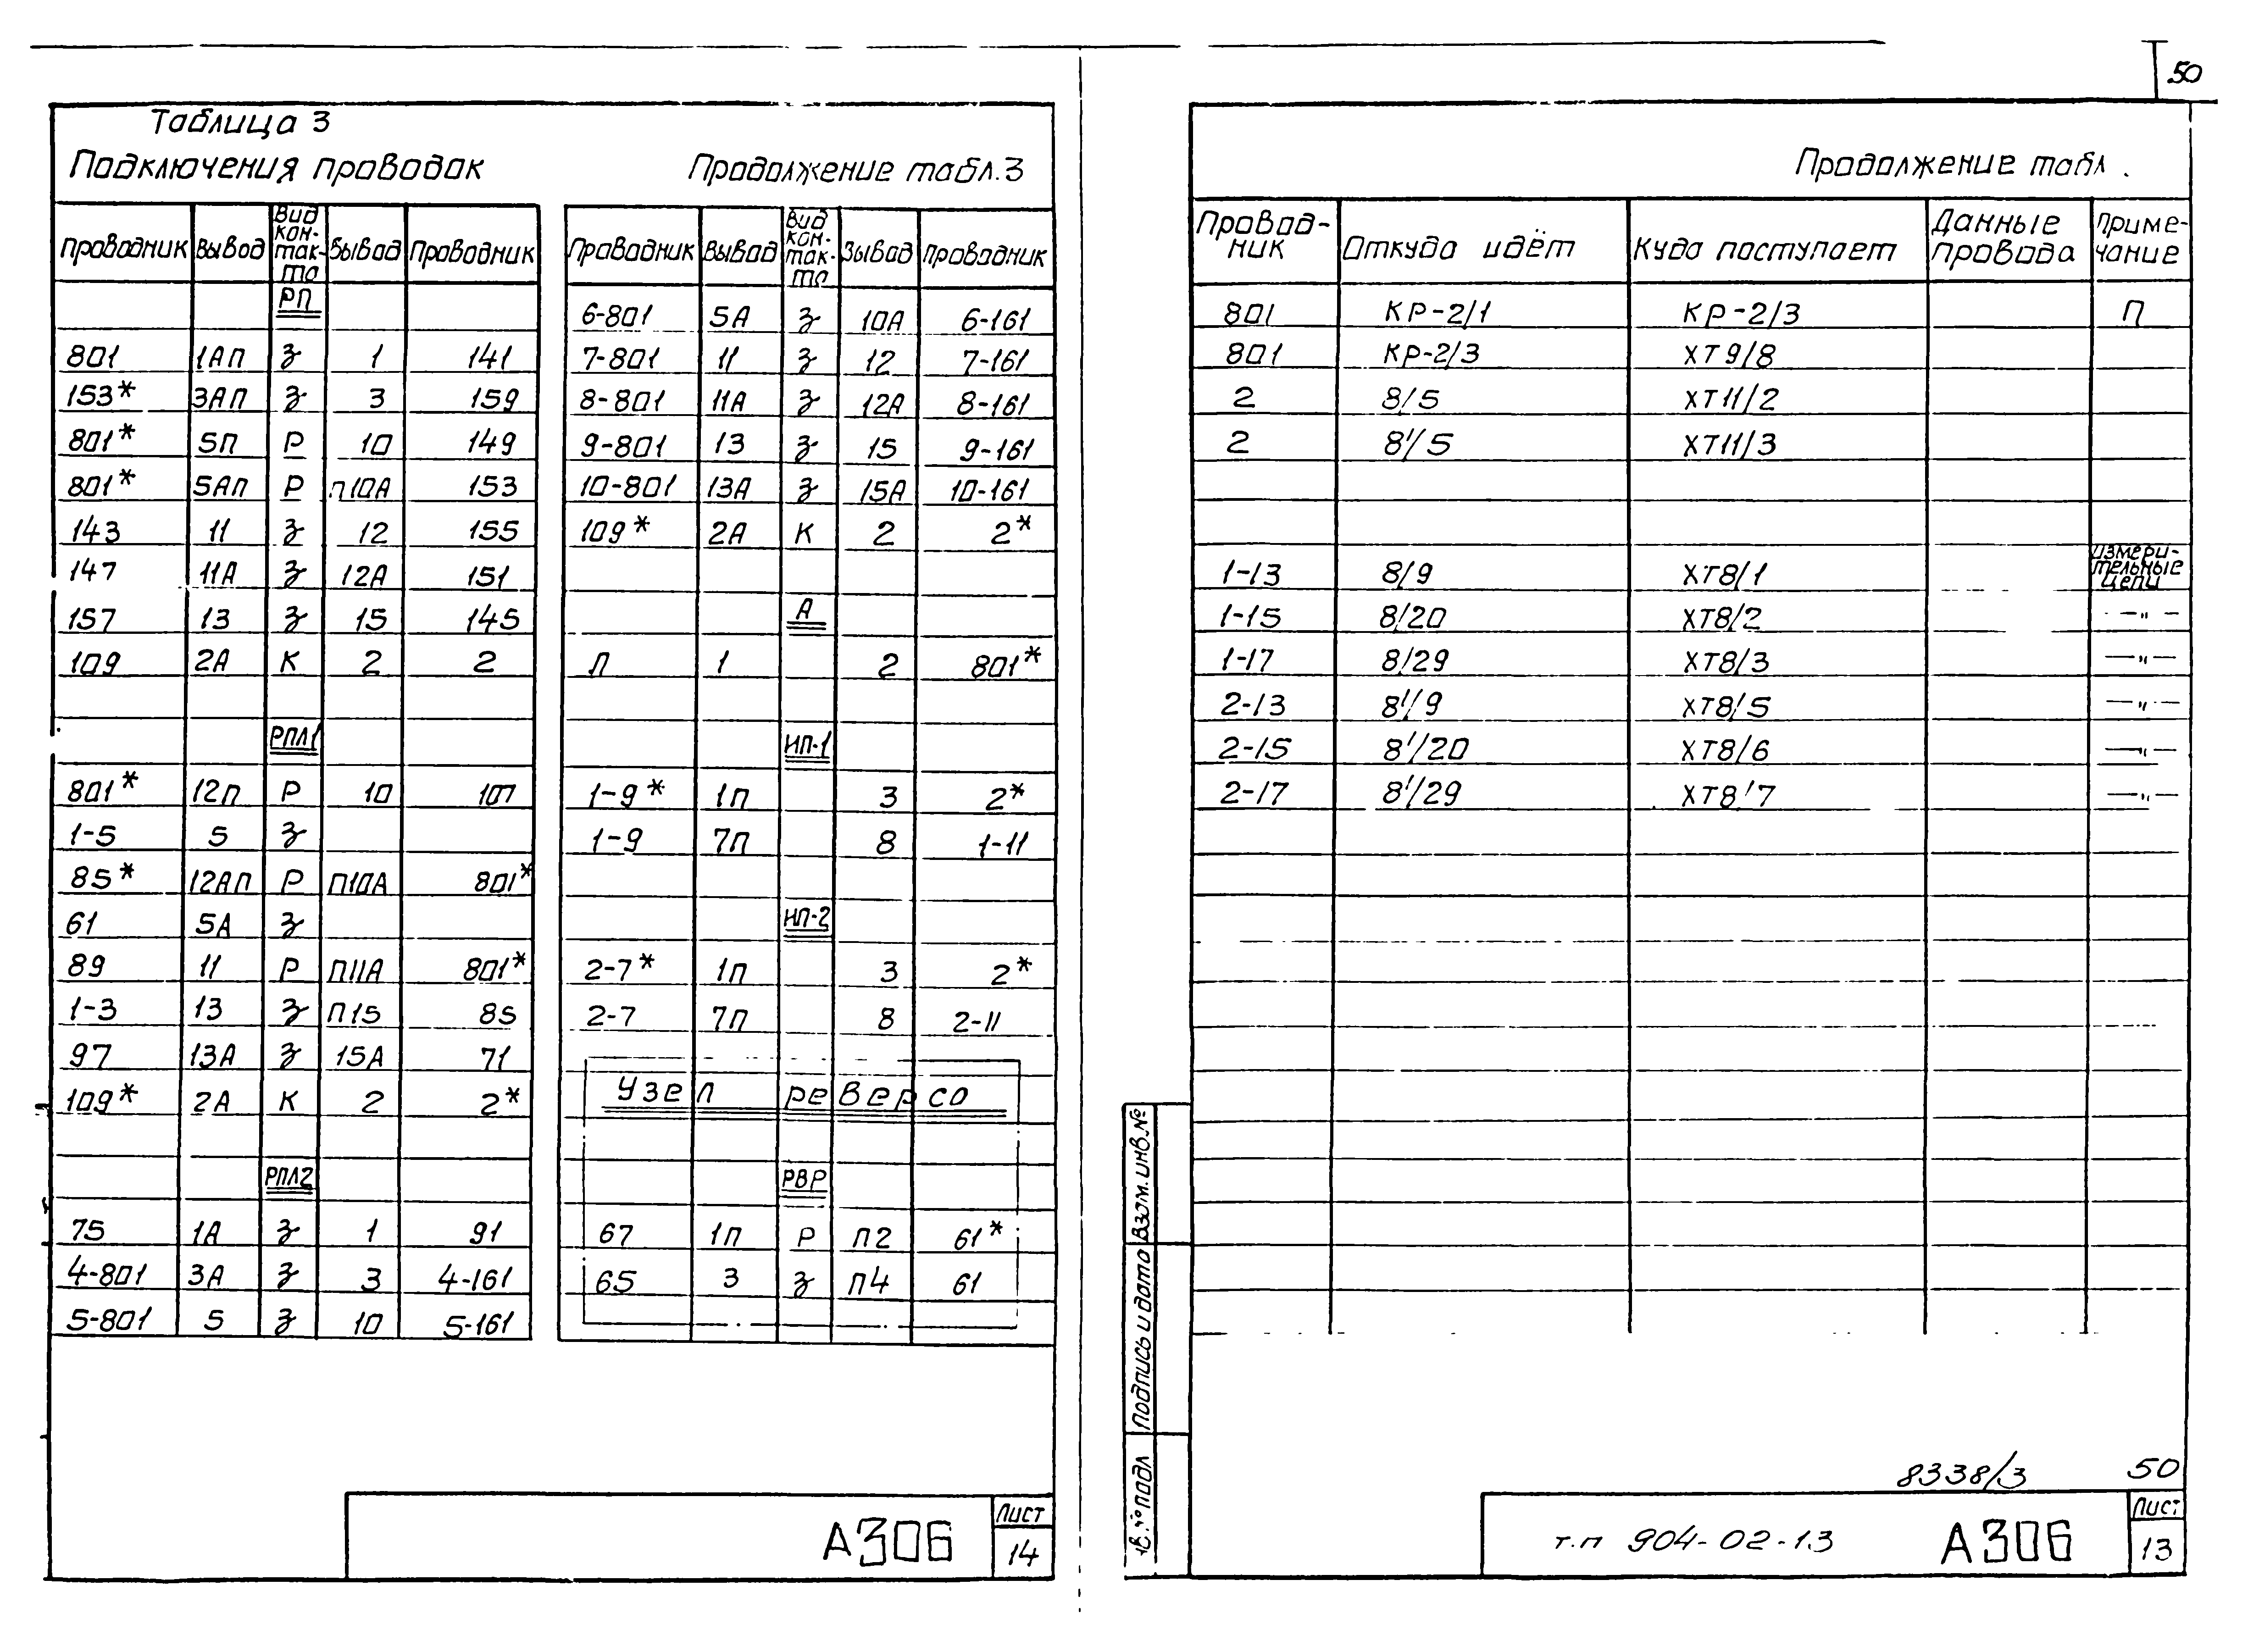 50
Таблица 3
Подключения проводок
Продолжение табл.3
Проводник Вывод Вид кон-так-та Вывод Проводник
РП
801 1АП З 1 141
153* 3АП З 3 159
801* 5П Р 10 149
801* 5АП Р П10А 153
143 11 З 12 155
147 11А З 12А 151
157 13 З 15 145
109 2А К 2 2
РПЛ1
801* 12П Р 10 107
1-5 5 З
85* 12АП Р П10А 801*
61 5А З
89 11 Р П11А 801*
1-3 13 З П15 85
97 13А З 15А 71
109* 2А К 2 2*
РПЛ2
75 1А З 1 91
4-801 3А З 3 4-161
5-801 5 З 10 5-161
Проводник Вывод Вид кон-так-та Вывод Проводник
6-801 5А З 10А 6-161
7-801 11 З 12 7-161
8-801 11А З 12А 8-161
9-801 13 З 15 9-161
10-801 13А З 15А 10-161
109* 2А К 2 2*
А
Л 1 2 801*
ИП-1
1-9* 1П 3 2*
1-9 7П 8 1-11
ИП-2
2-7* 1П 3 2*
2-7 7П 8 2-11
Узел реверса
РВР
67 1П Р П2 61*
65 3 З П4 61
А306
Лист
14
Продолжение табл .
Провод-ник Откуда идёт Куда поступает Данные провода Приме-чание
801 КР-2/1 КР-2/3 П
801 КР-2/3 ХТ9/8
2 8/5 ХТ11/2
2 8'/5 ХТ11/3
1-13 8/9 ХТ8/1 Измери-тельные цепи
1-15 8/20 ХТ8/2 —"—
1-17 8/29 ХТ8/3 —"—
2-13 8'/9 ХТ8/5 —"—
2-15 8'/20 ХТ8/6 —"—
2-17 8'/29 ХТ8/7 —"—
Взам. инв.№
Подпись и дата
нв.№подл
8338/3 50
т.п 904-02-13
А306
Лист
13